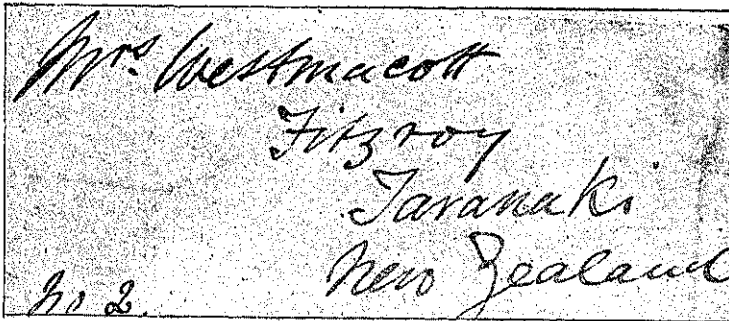 Mrs. Westmacott
Fitzroy
Taranaki
New Zealand
No 2.